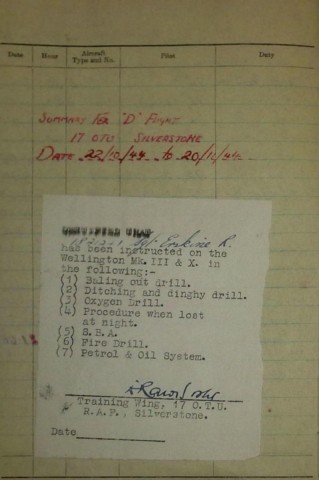 Date Hour Aircraft Type and No. Pilot Duty
SUMMARY FOR "D" FLIGHT
17 OTU SILVERSTONE
DATE 22/10/44 to 20/11/44
CERTIFIED THAT
Sgt Erskine R.
has been instructed on the
Wellington Mk. III & X. in
the following:-
(1) Baling out drill.
(2) Ditching and dinghy drill.
(3) Oxygen Drill.
(4) Procedure when lost
at night.
(5) S.B.A.
(6) Fire Drill.
(7) Petrol & Oil System.
Training Wing, 17 O.T.U.
R.A.F., Silverstone.
Date